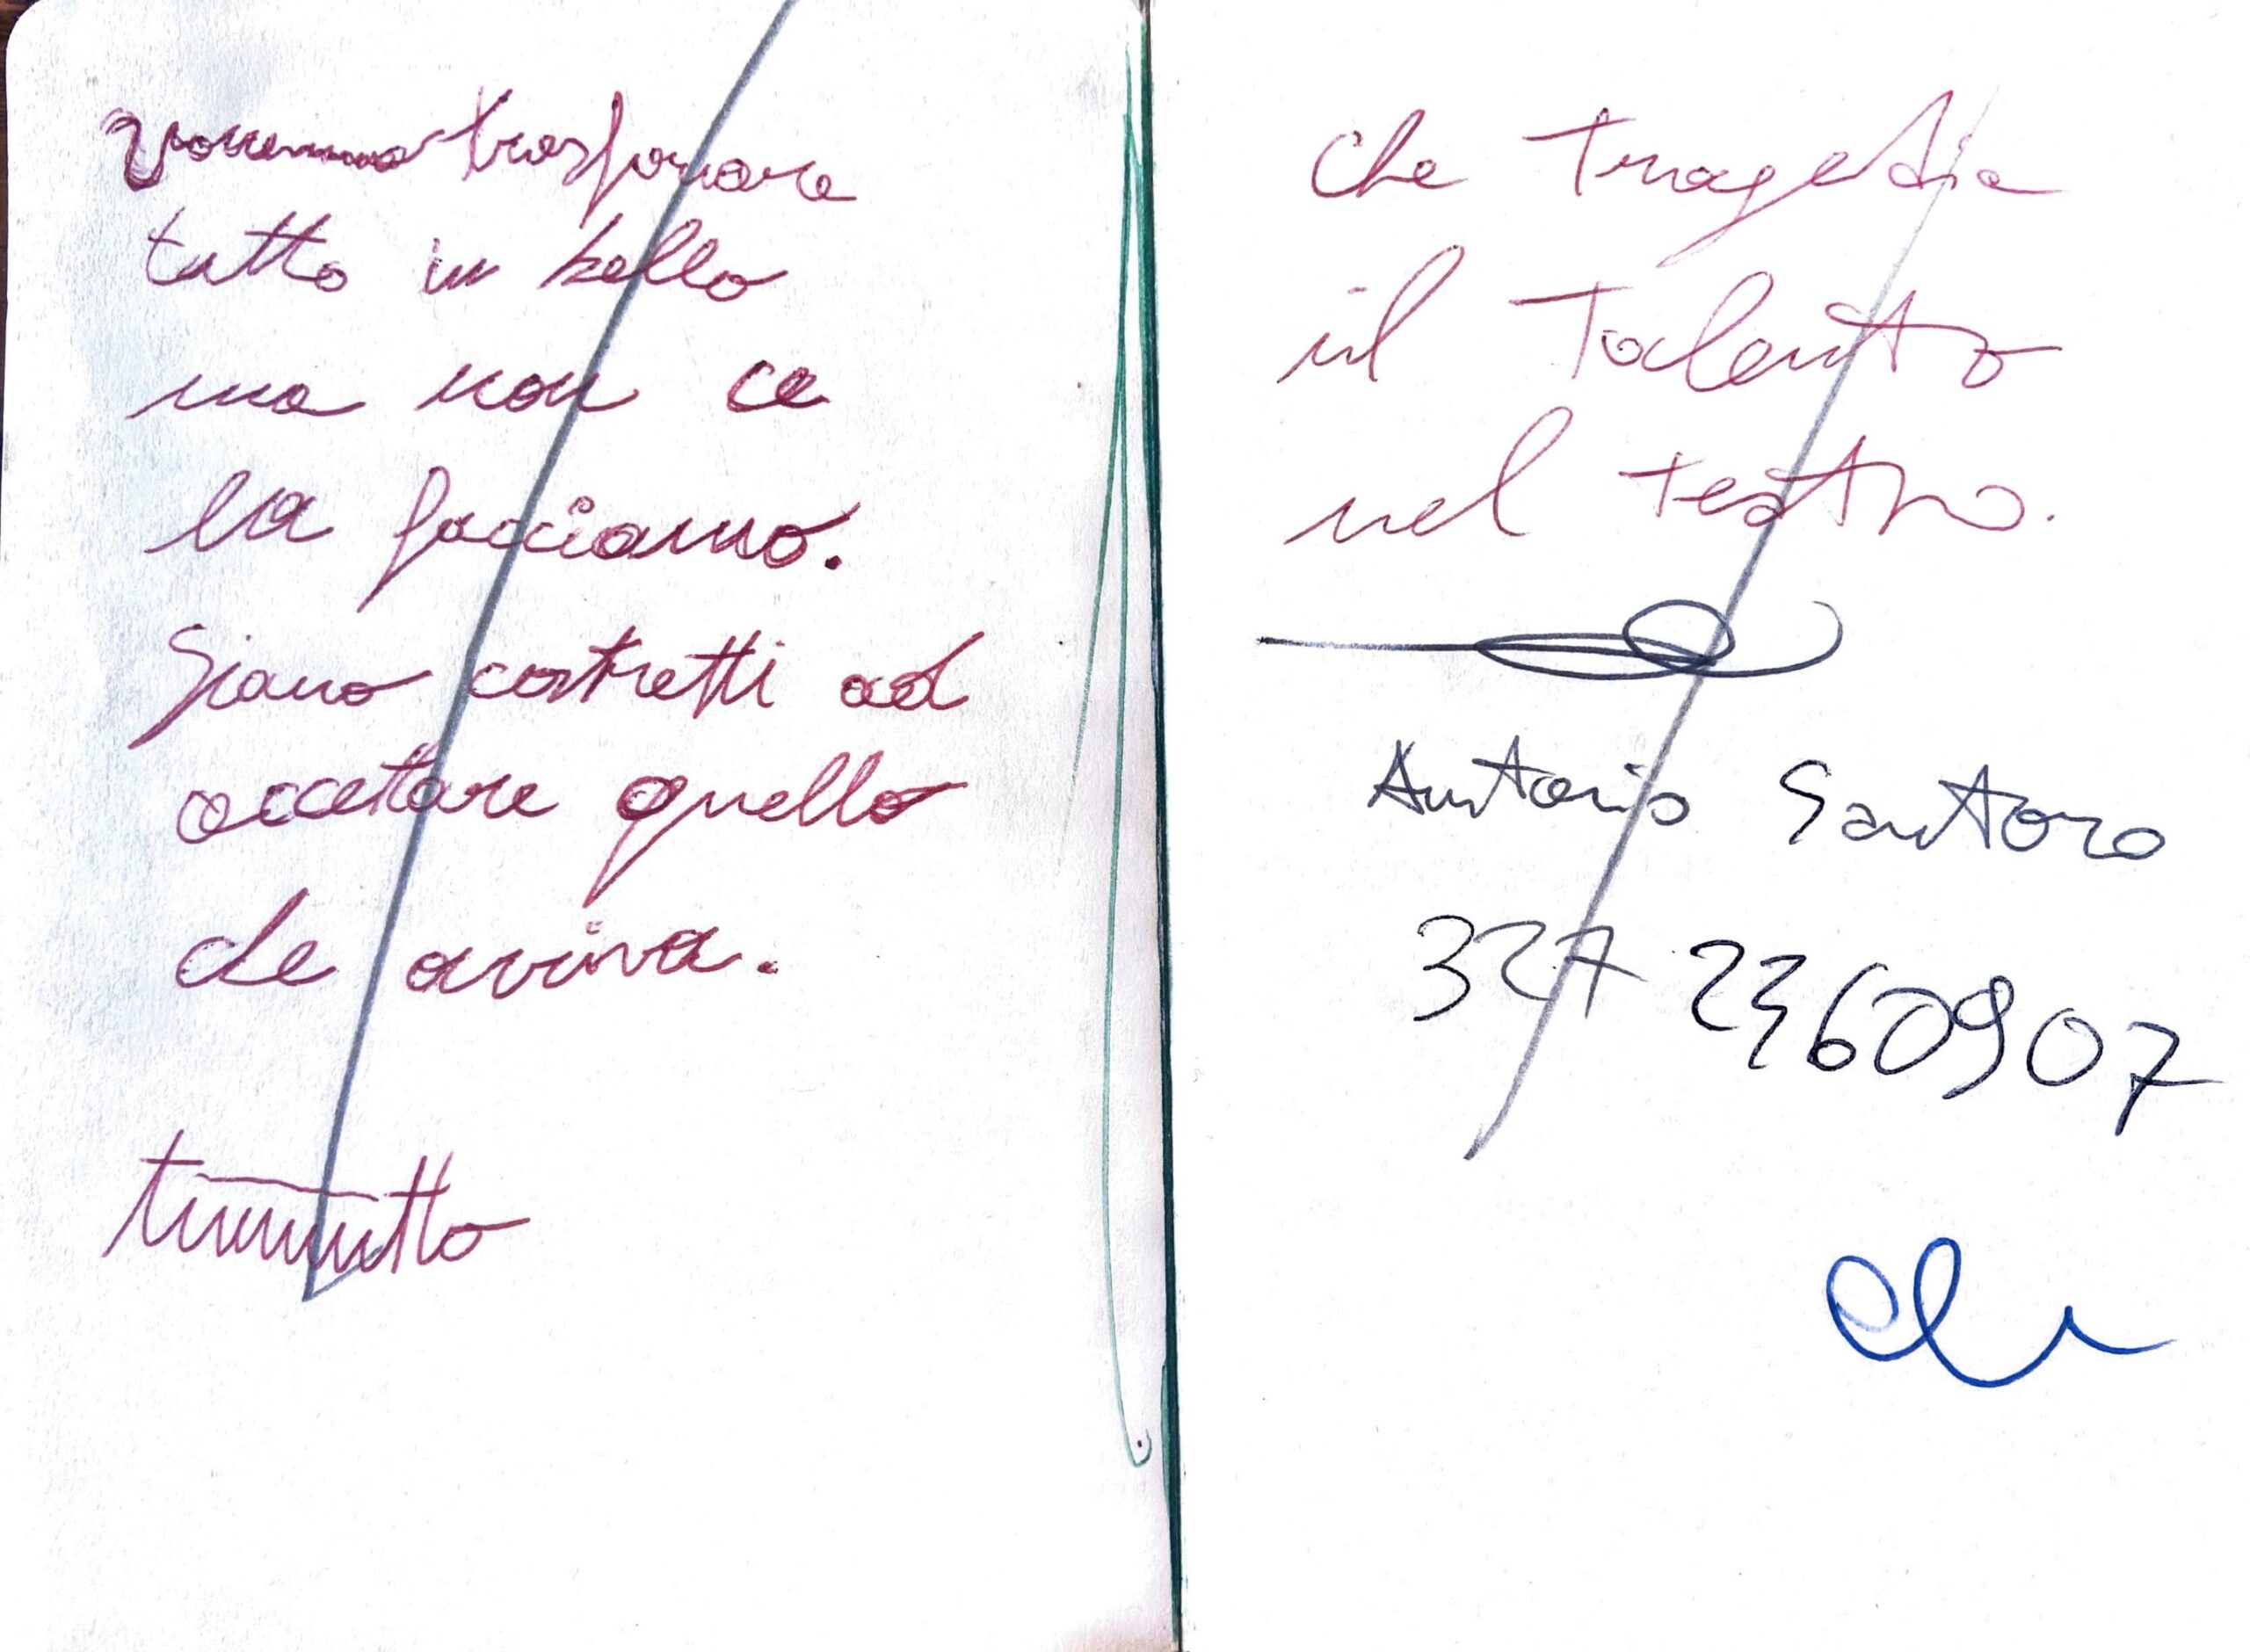 vorremmo trasformare
tutto in bello
ma non ce
la facciamo.
Siamo costretti ad
accettare quello
che arriva.
che tragedia
il Talento
nel teatro.
Antonio Santoro
327 2360907